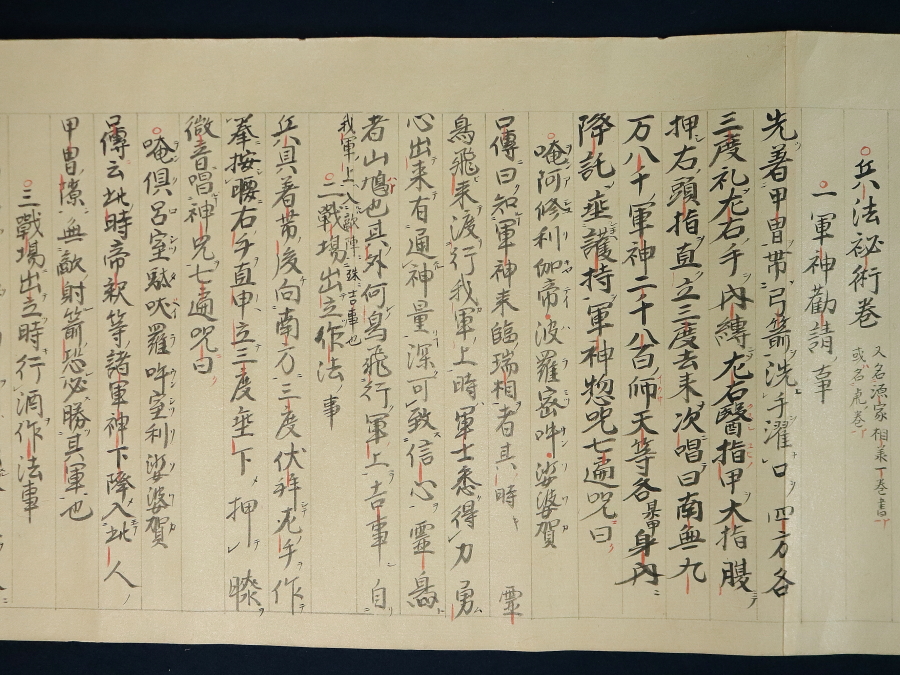 兵法祕術巻 又名源家相承丁巻書 或名虎巻
一軍神勸請事
先著甲冑帶弓箭洗手濯口四方各
三度礼左右手内縛左右醫指甲大指腹
押右頭指直立三度去来次唱曰南無九
万八千軍神二千八百師天等各 身内
降託垂護持軍神惣呪七遍呪曰
唵阿修利伽帝波羅密吽娑婆賀
口傳曰知軍神来臨瑞相者其時靈
鳥飛来渡行我軍上時軍士悉得力勇
心出来有通神量深可致信心靈鳥
者山鳩也其外何鳥飛行軍上吉事自
我軍上入敵陣殊吉事也
二戰場出立作法事
兵具著帶後向南方三度伏拜左手作
拳按腰右手直甲立三度垂下押
微音唱神呪七遍呪曰
唵俱呂室 吠羅吽室利娑婆賀
口傳云此時帝釈等諸軍神下降入此人
甲冑 無敵射箭恐必勝其軍也
三戰場出立時行酒作法事